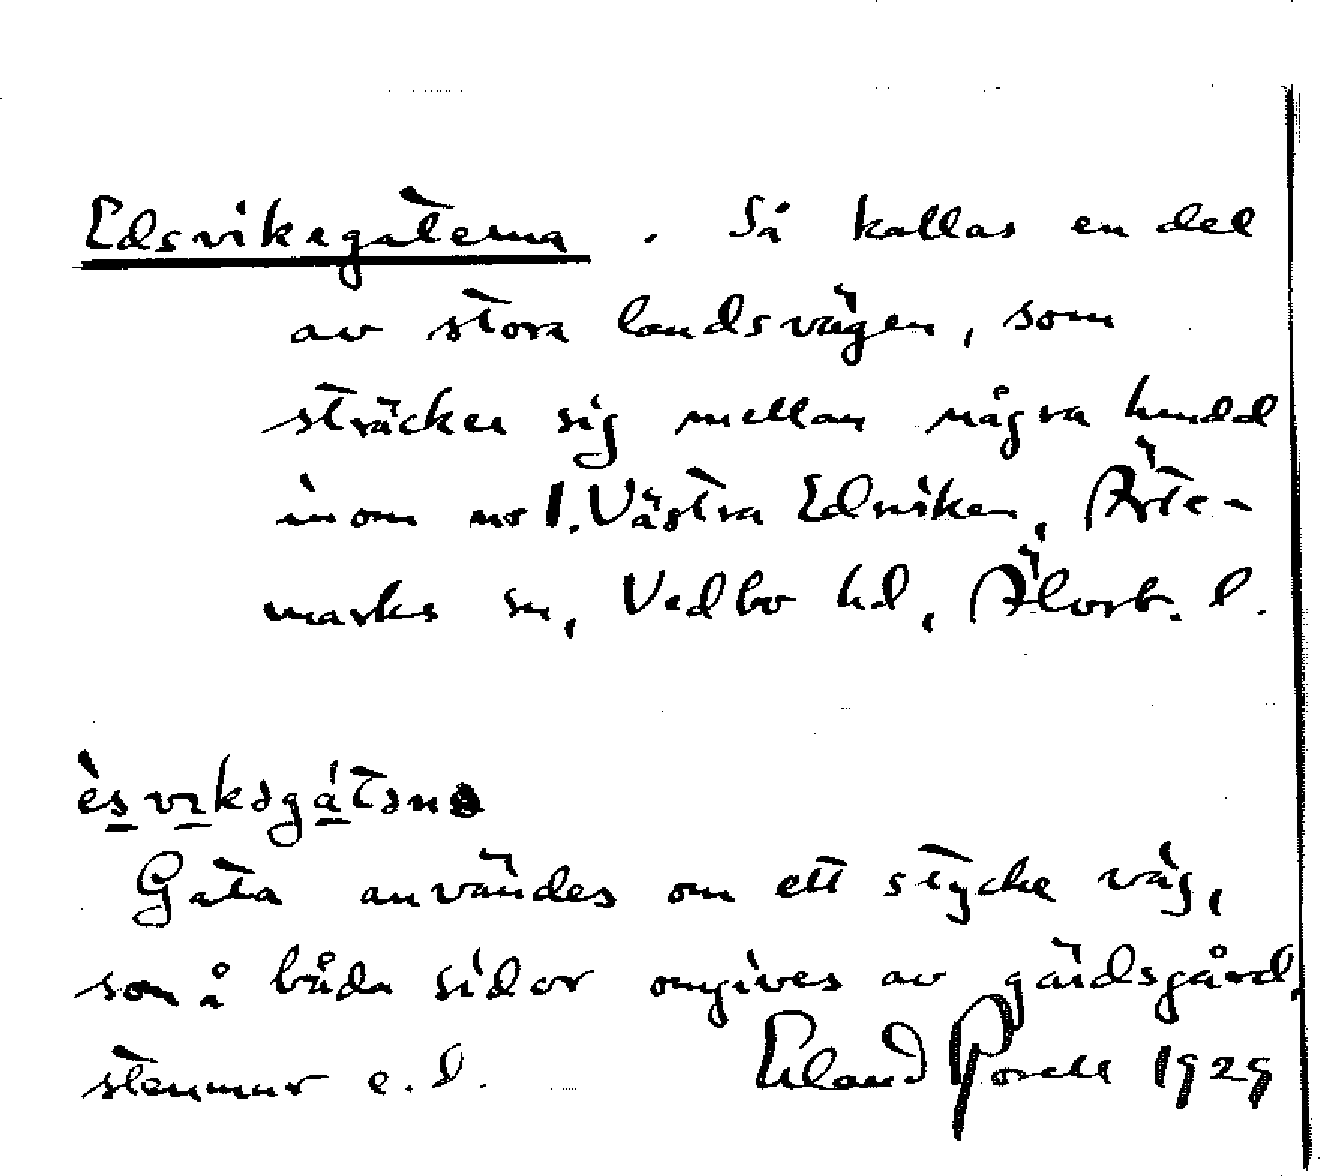 Edsvikegaterna. Så kallas en del
av stora landsvägen, som
sträcker sig mellan några hundd
inom nr 1. Västra Edsviken, Ärte-
marks sn, Vedbo hd, Älvsb. l.
Gata användes om ett stycke väg,
som å båda sidor omgives av gärdsgård,
stenmur e. d. Erland Rosell 1929